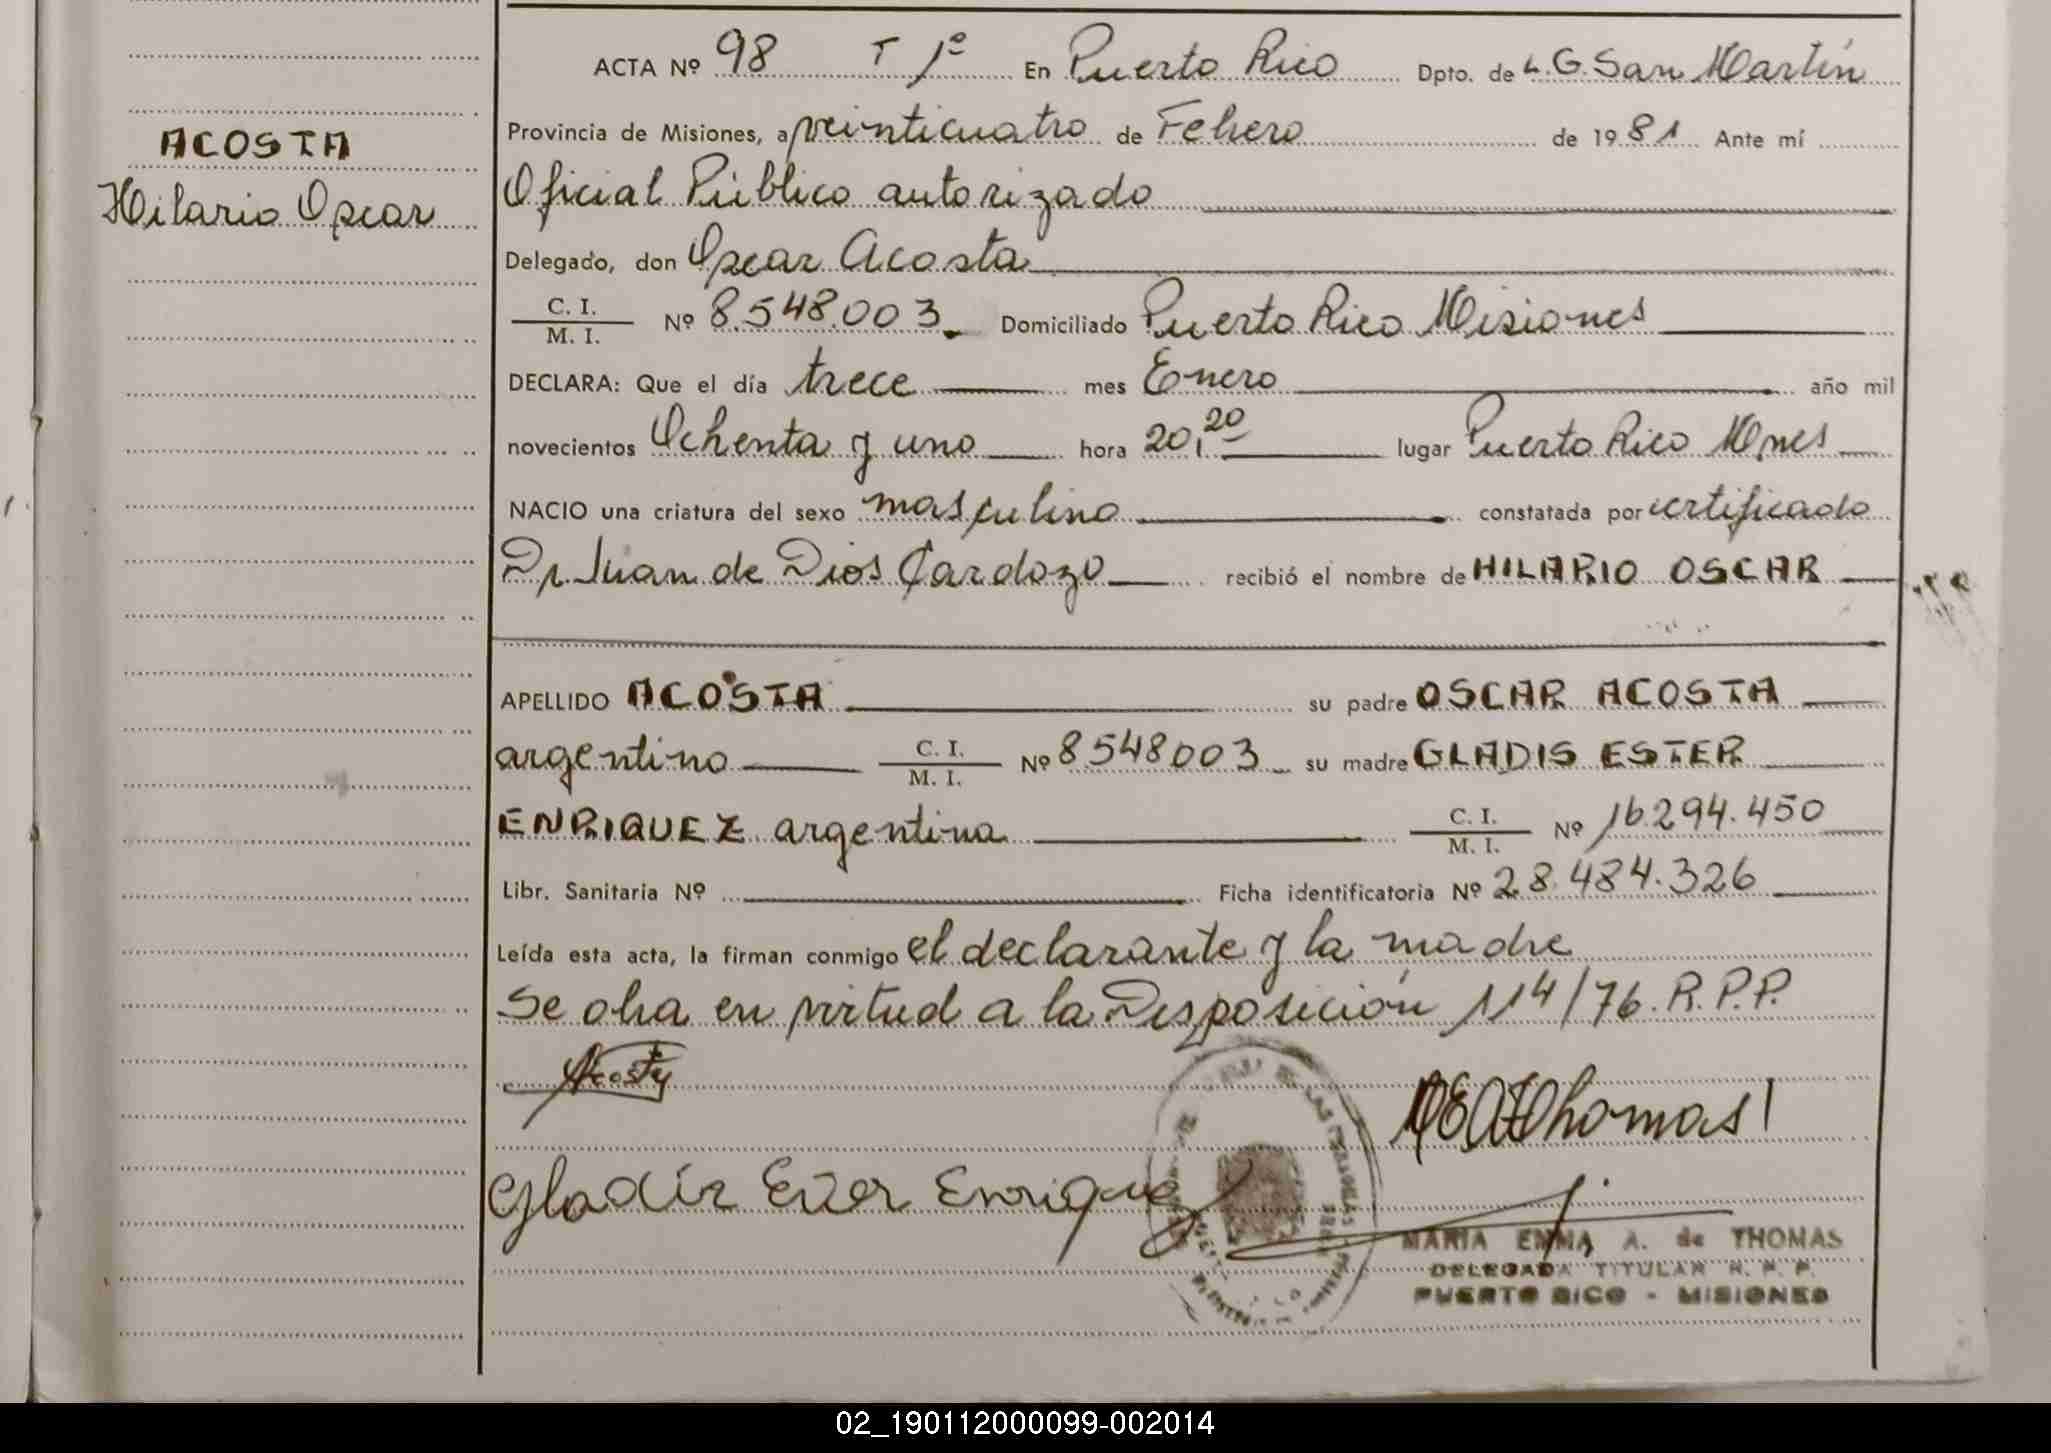 ACOSTA
Hilario Oscar
ACTA Nº 98 T 1º En Puerto Rico Dpto. de L. G. San Martín
Provincia de Misiones, a veinticuatro de Febrero de 1981 Ante mí
Oficial Público autorizado
Delegado, don Oscar Acosta
C. I.
M. I. Nº 8.548.003 Domiciliado Puerto Rico Misiones
DECLARA: Que el día trece mes Enero año mil
novecientos Ochenta y uno hora 20,20 lugar Puerto Rico Mnes
NACIO una criatura del sexo masculino constatada por certificado
Dr. Juan de Dios Cardozo recibió el nombre de HILARIO OSCAR
APELLIDO ACOSTA su padre OSCAR ACOSTA
argentino C. I. M. I. Nº 8548003 su madre GLADIS ESTER
ENRIQUEZ argentina C. I. M. I. Nº 16.294.450
Libr. Sanitaria Nº Ficha identificatoria Nº 28.484.326
Leída esta acta, la firman conmigo el declarante y la madre
Se obra en virtud a la Disposición 114/76. R.P.P.
Acosta
Gladis Ester Enriquez
MARIA EMMA A. de THOMAS
DELEGADA TITULAR R. P. P.
PUERTO RICO - MISIONES
02_190112000099-002014